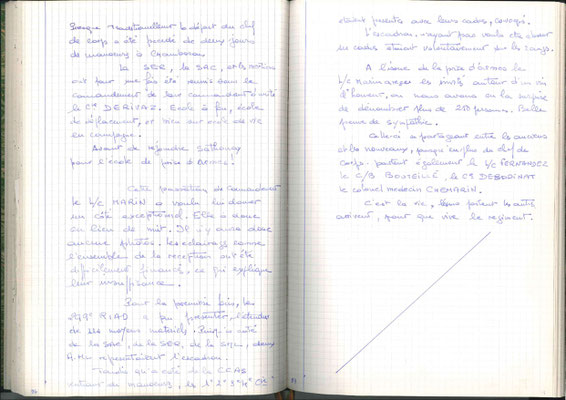 Presque traditionnellement le départ du chef
de corps a été précédé de deux jours
de manœuvre à Chambaran.
La SER, la SAC, et les sections
ont pour une fois été réunis sous le
commandement de leur commandant d'unité
le Cne DERIVAZ. Ecole à feu, école
de déplacement, et mise sur école de vie
en campagne.
Avant de rejoindre sathonay
pour l'école de prise d'Armes!
Cette présentation de commandement
le L/C MARIN a voulu lui donner
un côté exceptionnel. Elle a donc
eu lieu de nuit. Il y aura donc
aucune photos. Les éclairages comme
l'ensemble de la réception ont été
difficilement financé, ce qui explique
leur
Pour la première fois, les
RIAD a pu présenter l'étendue
de ses moyens matériels. Puisqu'à côté
de la SAC, de la SER, de la deux
A.M. représentaient l'escadron.
Tandis qu'à côté de la CCAS
de manœuvre, les 1° 2° 3° 4° CB
étaient présents avec leurs cadres,
L'escadron n'ayant pas voulu être absent
ses cadres étaient volontairement sur les rangs.
A l'issue de la prise d'armes le
L/C Marin les invités autour d'un vin
d'honneur, où nous avons eu la surprise
de dénombrer plus de 250 personnes. Belle
preuve de sympathie.
Celle-ci a partageant entre les anciens
et les nouveaux, puisqu'en plus du chef de
corps partent également le L/C FERNANDEZ
le C/B BOUTEILLÉ, le Cne DEBODINAT
le colonel médecin CHEMARIN.
C'est la vie, les uns partent les autres
arrivent, pour que vive le régiment.